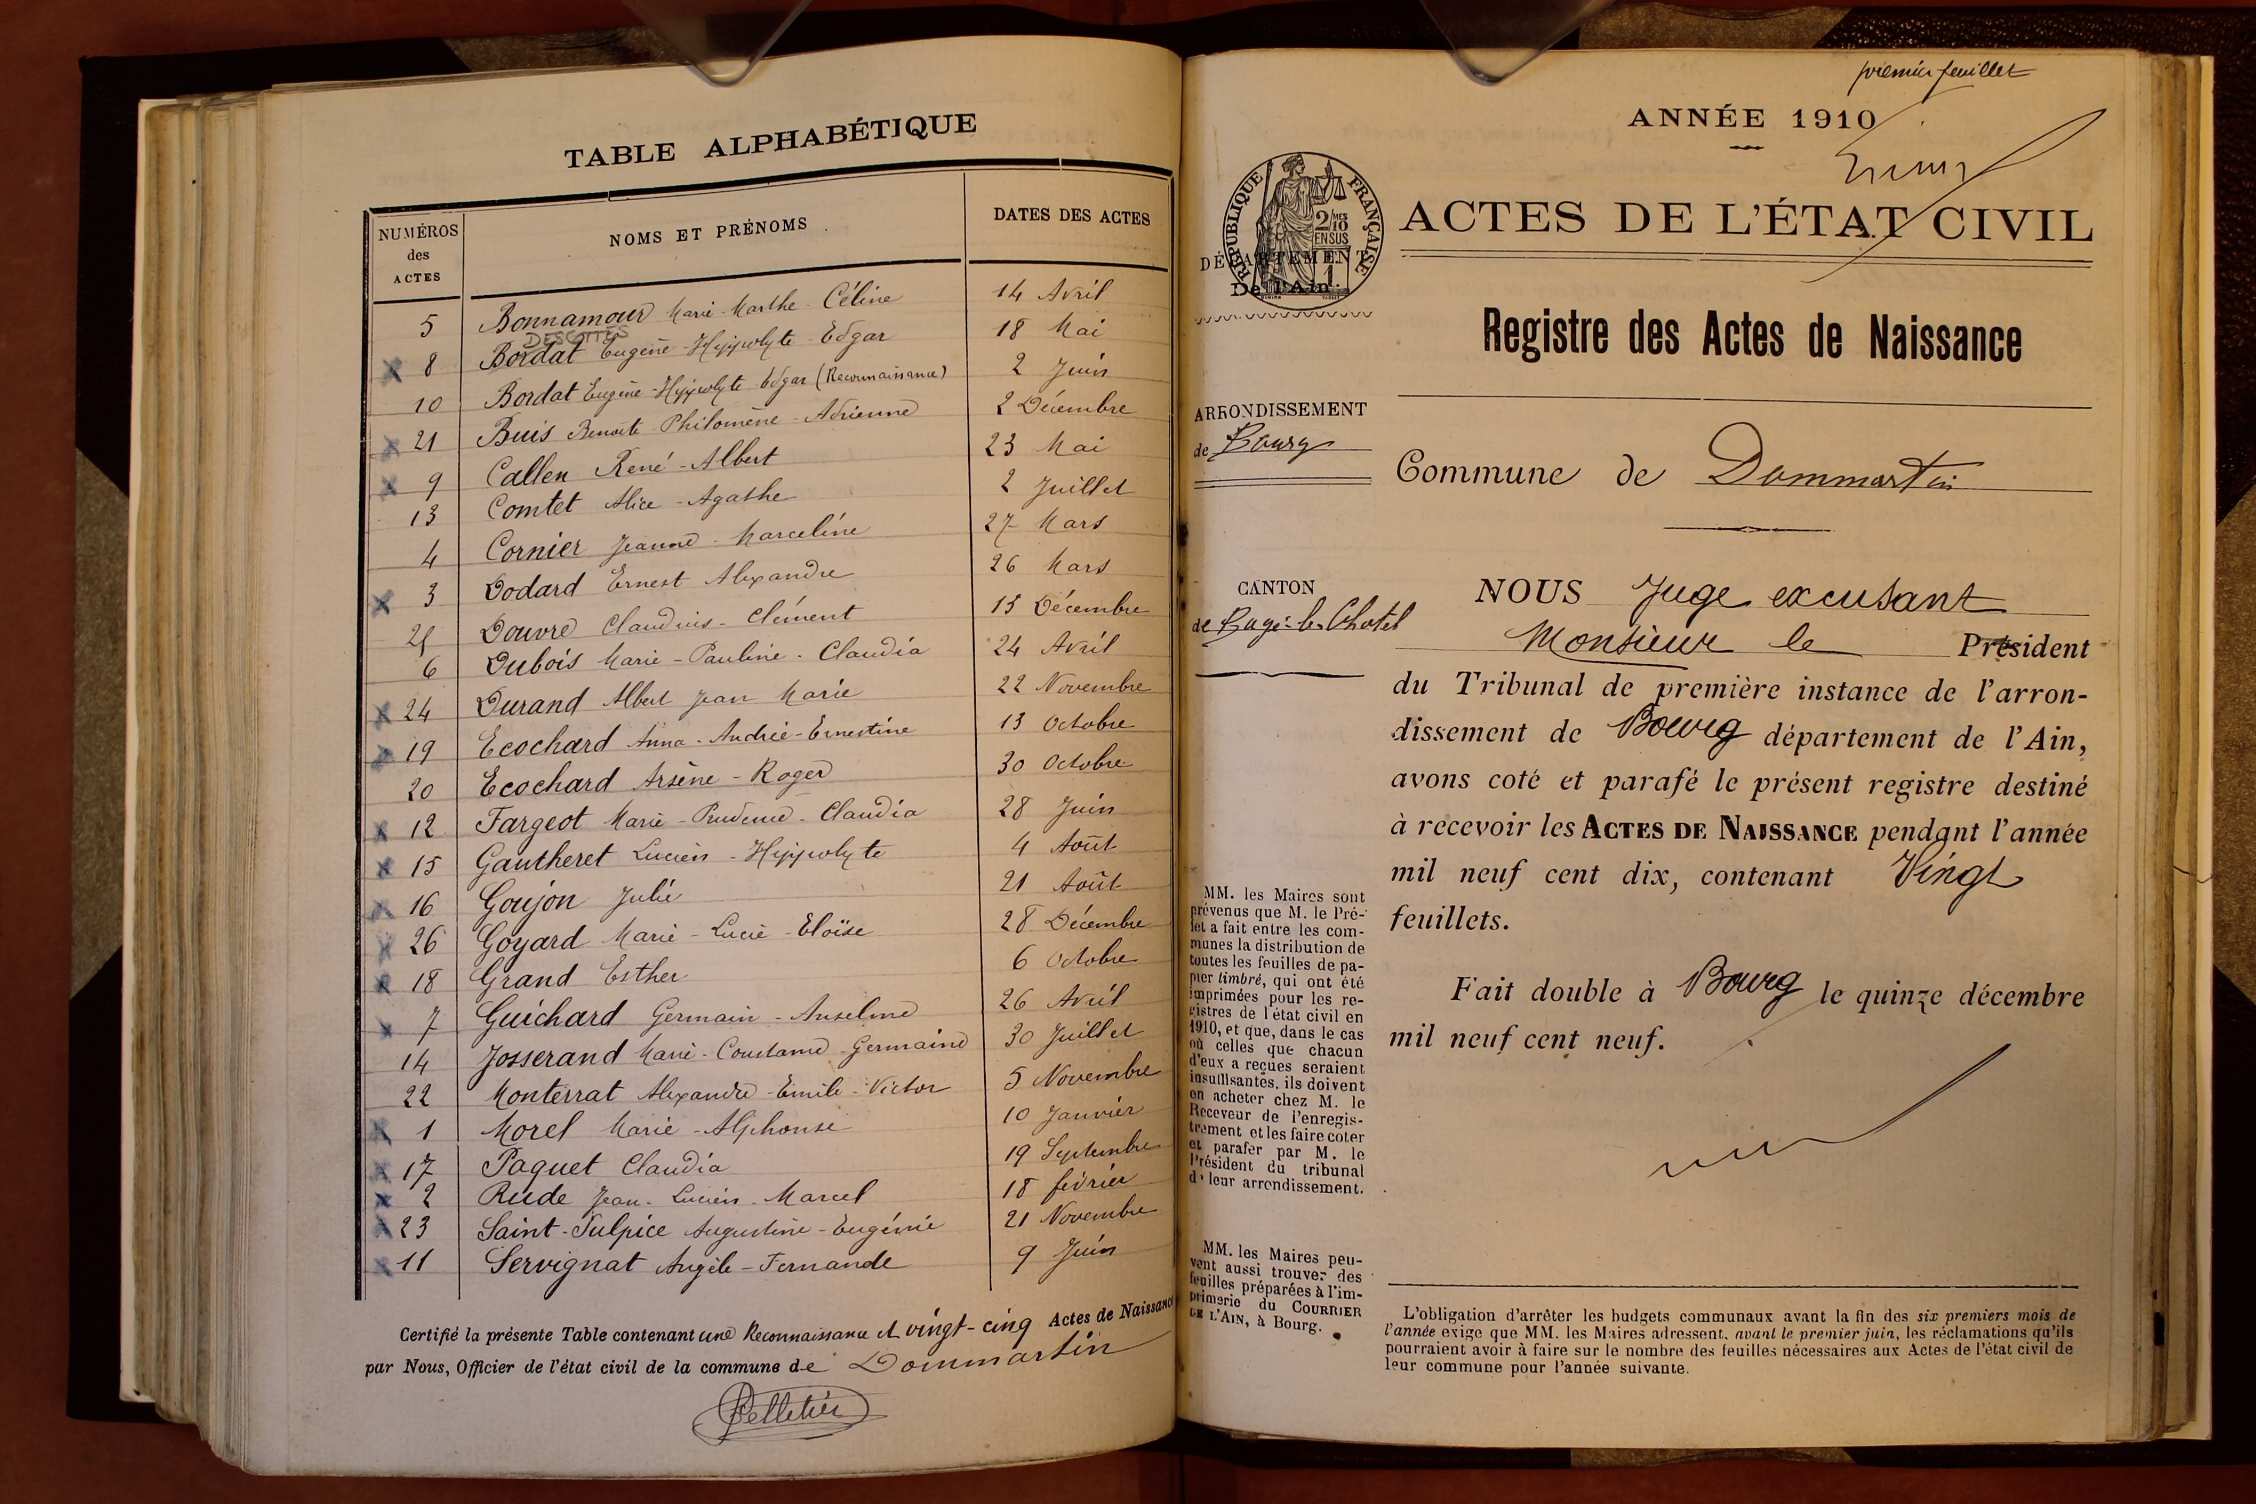 TABLE ALPHABÉTIQUE
NUMÉROS des ACTES
NOMS ET PRÉNOMS
DATES DES ACTES
5 Bonnamour Marie Marthe Céline 14 Avril
DESCOTTES
8 Bordat Eugène Hyppolyte Edgar 18 Mai
10 Bordat Eugène Hyppolyte Edgar (Reconnaissance) 2 Juin
21 Buis Benoite Philomène Adrienne 2 Décembre
9 Callen René-Albert 23 Mai
13 Comtet Alice-Agathe 2 Juillet
4 Cornier Jeanne Marceline 27 Mars
3 Dodard Ernest Alexandre 26 Mars
25 Douvre Claudius-Clément 13 Décembre
6 Dubois Marie-Pauline-Claudia 24 Avril
24 Durand Albert Jean Marie 22 Novembre
19 Ecochard Anna-Andrée-Ernestine 13 Octobre
20 Ecochard Arsène-Roger 30 Octobre
12 Fargeot Marie-Prudence-Claudia 28 Juin
15 Gautheret Lucien-Hyppolyte 4 Août
16 Goujon Julie 21 Août
26 Goyard Marie-Lucie-Eloïse 28 Décembre
18 Grand Esther 6 Octobre
7 Guichard Germain-Anselme 26 Avril
14 Josserand Marie-Constance-Germaine 30 Juillet
22 Monterrat Alexandre-Emile-Victor 5 Novembre
1 Morel Marie-Alphonse 10 Janvier
17 Paquet Claudia 19 Septembre
2 Rude Jean-Lucien-Marcel 18 février
23 Saint-Sulpice Augustine-Eugénie 21 Novembre
11 Servignat Angèle-Fernande 9 Juin
Certifié la présente Table contenant une Reconnaissance et vingt-cinq Actes de Naissance
par Nous, Officier de l'état civil de la commune de Dommartin
Pelletier
premier feuillet
ANNÉE 1910
RÉPUBLIQUE FRANÇAISE
2/10 MES EN SUS
1
ACTES DE L'ÉTAT CIVIL
DÉPARTEMENT
De l'Ain.
Registre des Actes de Naissance
ARRONDISSEMENT
de Bourg
Commune de Dommartin
CANTON
de Bagé-le-Chatel
NOUS Juge excusant
Monsieur le Président
du Tribunal de première instance de l'arron-
dissement de Bourg département de l'Ain,
avons coté et parafé le présent registre destiné
à recevoir les ACTES DE NAISSANCE pendant l'année
mil neuf cent dix, contenant Vingt
feuillets.
Fait double à Bourg le quinze décembre
mil neuf cent neuf.
MM. les Maires sont
prévenus que M. le Pré-
fet a fait entre les com-
munes la distribution de
toutes les feuilles de pa-
pier timbré, qui ont été
imprimées pour les re-
gistres de l'état civil en
1910, et que, dans le cas
où celles que chacun
d'eux a reçues seraient
insuffisantes, ils doivent
en acheter chez M. le
Receveur de l'enregis-
trement et les faire coter
et parafer par M. le
Président du tribunal
de leur arrondissement.
MM. les Maires peu-
vent aussi trouver des
feuilles préparées à l'im-
primerie du COURRIER
DE L'AIN, à Bourg.
L'obligation d'arrêter les budgets communaux avant la fin des six premiers mois de
l'année exige que MM. les Maires adressent, avant le premier juin, les réclamations qu'ils
pourraient avoir à faire sur le nombre des feuilles nécessaires aux Actes de l'état civil de
leur commune pour l'année suivante.